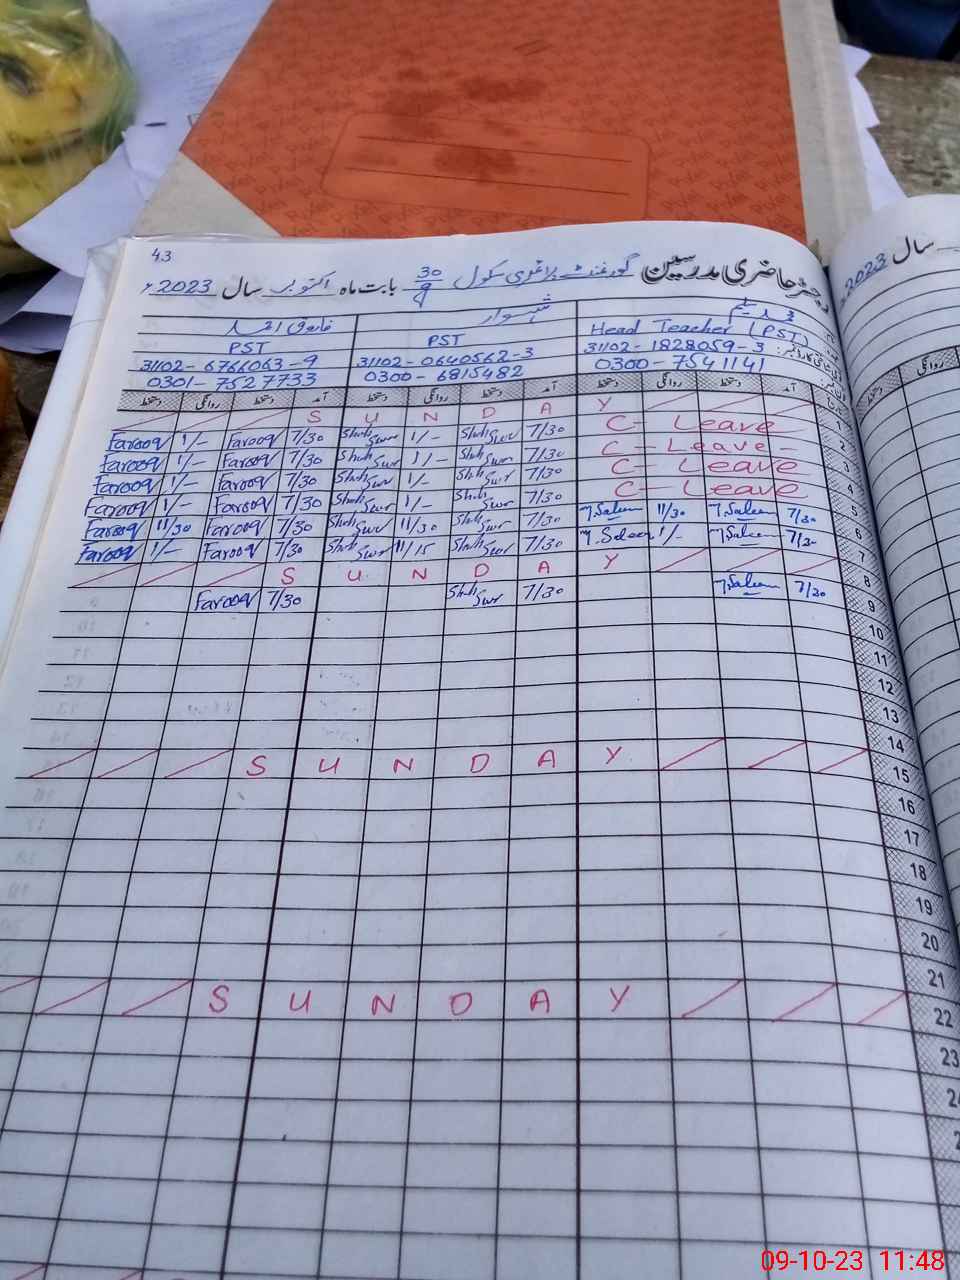 43
رجسٹر حاضری مدرسین گورنمنٹ پرائمری سکول 30/9 بابت ماہ اکتوبر سال 2023ء
فاروق احمد شہسوار محمد سلیم
PST PST Head Teacher (PST)
31102-6766063-9 31102-0640562-3 31102-1828059-3
0301-7527733 0300-6815482 0300-7541141
دستخط روانگی دستخط آمد دستخط روانگی دستخط آمد دستخط روانگی دستخط آمد
S U N D A Y 1
Farooq 1/- Farooq 7/30 Shah Swr 1/- Shah Swr 7/30 C- Leave 2
Farooq 1/- Farooq 7/30 Shah Swr 1/- Shah Swr 7/30 C- Leave - 3
Farooq 1/- Farooq 7/30 Shah Swr 1/- Shah Swr 7/30 C- Leave 4
Farooq 1/- Farooq 7/30 Shah Swr 1/- Shah Swr 7/30 C- Leave 5
Farooq 11/30 Farooq 7/30 Shah Swr 11/30 Shah Swr 7/30 M.Saleem 11/30 M.Saleem 7/30 6
Farooq 1/- Farooq 7/30 Shah Swr 11/15 Shah Swr 7/30 M.Saleem 1/- M.Saleem 7/30 7
S U N D A Y 8
Farooq 7/30 Shah Swr 7/30 M.Saleem 7/30 9
10
11
12
13
14
S U N D A Y 15
16
17
18
19
20
21
S U N D A Y 22
23
24
2023 سال
روانگی دستخط
Pixel
09-10-23 11:48